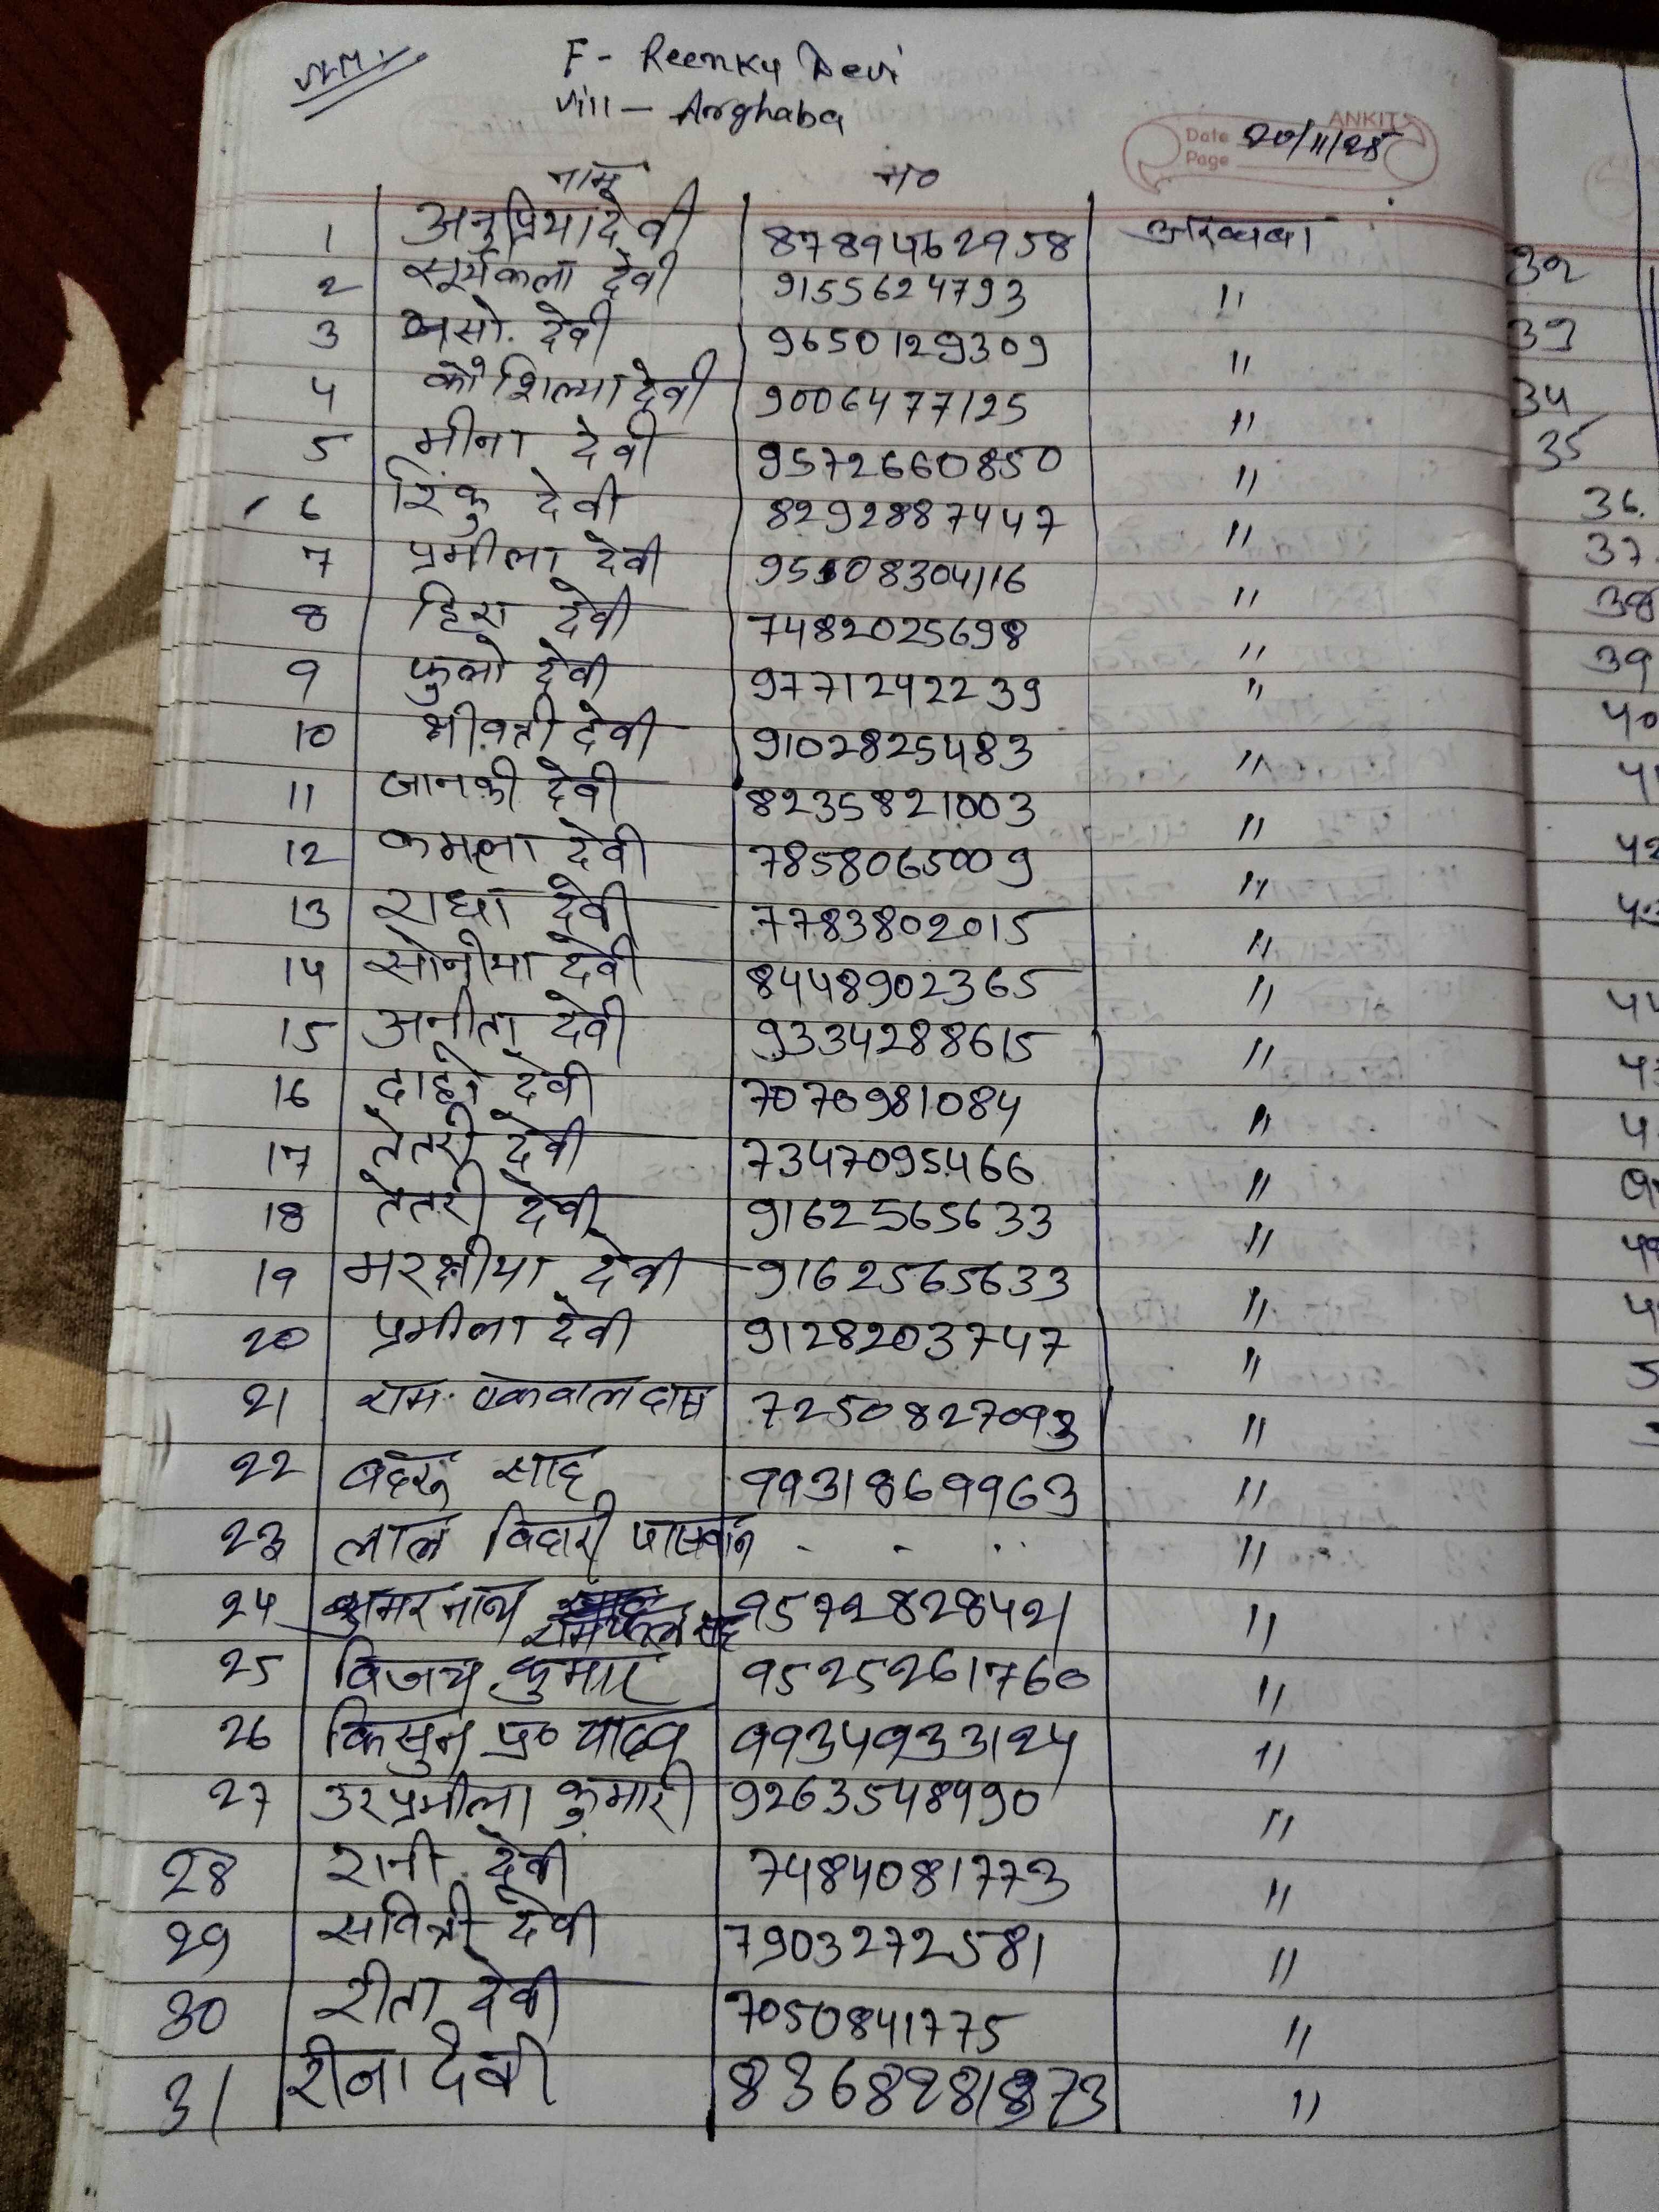 F- Reenku Devi
Vill- Arghaba
ANKIT
Date 20/11/25
Page
नाम मो०
1 अनुप्रिया देवी 87894562958 अरघाबा
2 सूर्यकला देवी 9155624793 "
3 जसो. देवी 9650129309 "
4 कौशिल्या देवी 9006477125 "
5 मीना देवी 9572660850 "
6 रिंकु देवी 8292887447 "
7 प्रमीला देवी 95508304116 "
8 हिरा देवी 7482025698 "
9 फुलो देवी 9771242239 "
10 देवी 9102825483 "
11 जानकी देवी 8235821003 "
12 कमला देवी 7858065009 "
13 राधा देवी 7783802015 "
14 सोनीया देवी 8448902365 "
15 अनीता देवी 9334288615 "
16 देवी 7070981084 "
17 तेतरी देवी 7347095466 "
18 तेतरी देवी 9162565633 "
19 देवी 9162565633 "
20 प्रमीला देवी 9128203747 "
21 राम. एकवाल दास 7250827093 "
22 साह 9931869963 "
23 लाल विहारी पासवान - - .. "
24 अमरनाथ 9572828421 "
25 विजय कुमार 9525261760 "
26 किसुन प्र० यादव 9934933124 "
27 उरप्रमीला कुमारी 9263548490 "
28 रानी देवी 7484081773 "
29 सवित्री देवी 7903272581 "
30 रीता देवी 7050841775 "
31 रीना देवी "
32
33
34
35
36.
37.
38
39
40
41
42